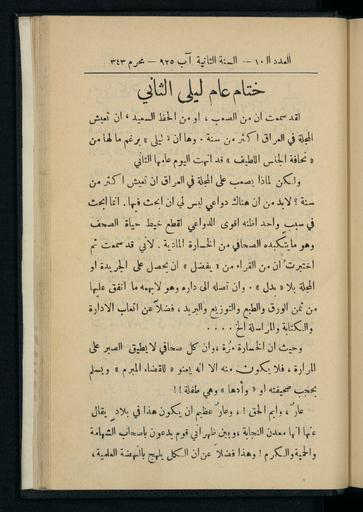 العدد الـ ١٠ — السنة الثانية آب ٩٢٥ — محرم ٣٤٣
ختام عام ليلى الثاني
لقد سمعت ان من الصعب ، او من الحظ السعيد ، ان تعيش
المجلة في العراق اكثر من سنة . وها ان « ليلى » برغم مالها من
« نحافة الجنس اللطيف » قد انهت اليوم عامها الثاني
ولكن لماذا يصعب على المجلة في العراق ان تعيش اكثر من
سنة ؟ لابد من ان هناك دواعي ليس لي ان ابحث فيها . انما ابحث
في سبب واحد اظنه اقوى الدواعي لقطع خيط حياة الصحف
وهو ما يتكبده الصحافي من الخسارة المادية . لاني قد سمعت ثم
اختبرت ان من القراء من « يفضل » ان يحصل على الجريدة او
المجلة بلا « بدل » . وان تصله الى داره وهو لا يهمه ما انفق عليها
من ثمن الورق والطبع والتوزيع والبريد ، فضلاً عن اتعاب الادارة
والكتابة والمراسلة الخ . . . .
وحيث ان الخسارة مرّة ، وان كل صحافي لا يطيق الصبر على
المرارة ، فلا يكون منه الا انه يعنو « للقضاء المبرم » ويسلم
بحجب صحيفته او « وأدها » وهي طفلة ! !
عارٌ ، وايم الحق ! ، وعارٌ عظيم ان يكون هذا في بلاد يقال
عنها انها معدن النجابة ، وبين ظهراني قوم يدعون باصحاب الشهامة
والحمية والكرم ! وهذا فضلاً عن ان الكل يلهج بالنهضة العلمية ،